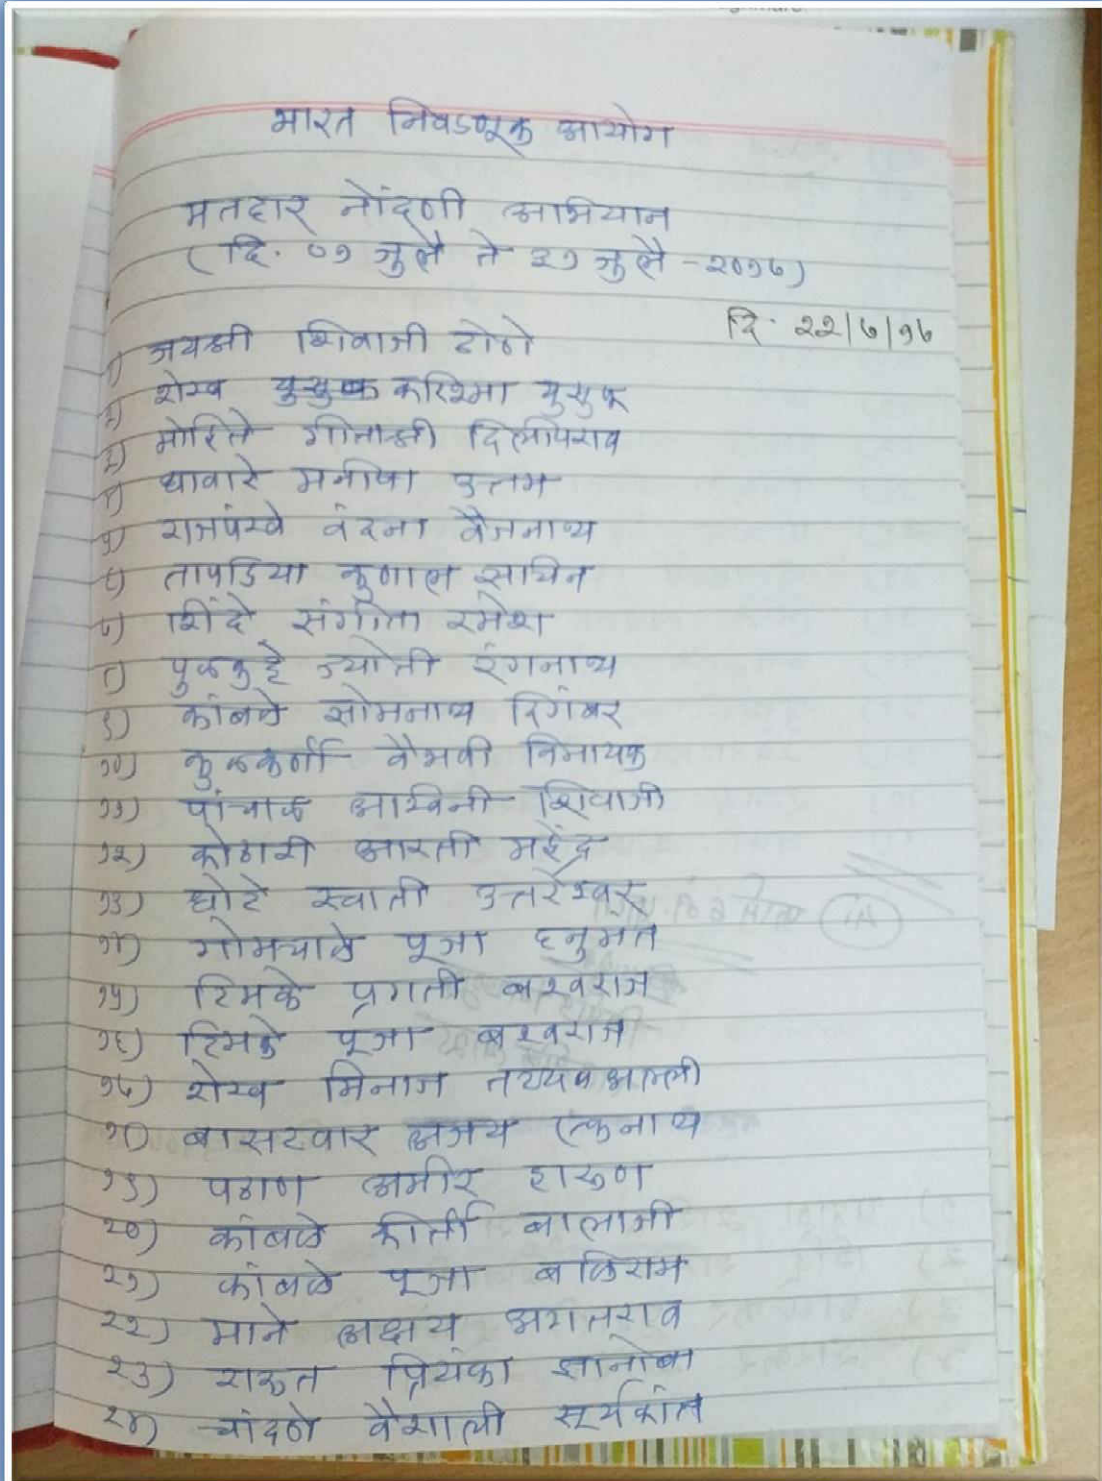 भारत निवडणूक आयोग
मतदार नोंदणी अभियान
(दि. ०१ जुलै ते ३१ जुलै - २०१७)
दि. २२/७/१७
१) जयश्री शिवाजी टोणे
२) शेख करिश्मा युसुफ
३) मोहिते गीतांजली दिलीपराव
४) धावारे मनीषा उत्तम
५) राजपंखे वंदना वैजनाथ
६) तापडिया कुणाल सचिन
७) शिंदे संगीता रमेश
८) पुळकुट्टे ज्योती रंगनाथ
९) कांबळे सोमनाथ दिगंबर
१०) कुळकर्णी वैभवी विनायक
११) पांचाळ आश्विनी शिवाजी
१२) कोठारी आरती महेंद्र
१३) घोटे स्वाती उत्तरेश्वर
१४) गोमचाळे पूजा हनुमंत
१५) टिमके प्रगती बस्वराज
१६) टिमके पूजा बस्वराज
१७) शेख मिनाज तय्यबअल्ली
१८) बासटवार अजय एकनाथ
१९) पठाण अमीर हारुण
२०) कांबळे कीर्ती बालाजी
२१) कांबळे पूजा बळिराम
२२) माने अक्षय भगतराव
२३) राऊत प्रियंका ज्ञानोबा
२४) चांदणे वैशाली सूर्यकांत